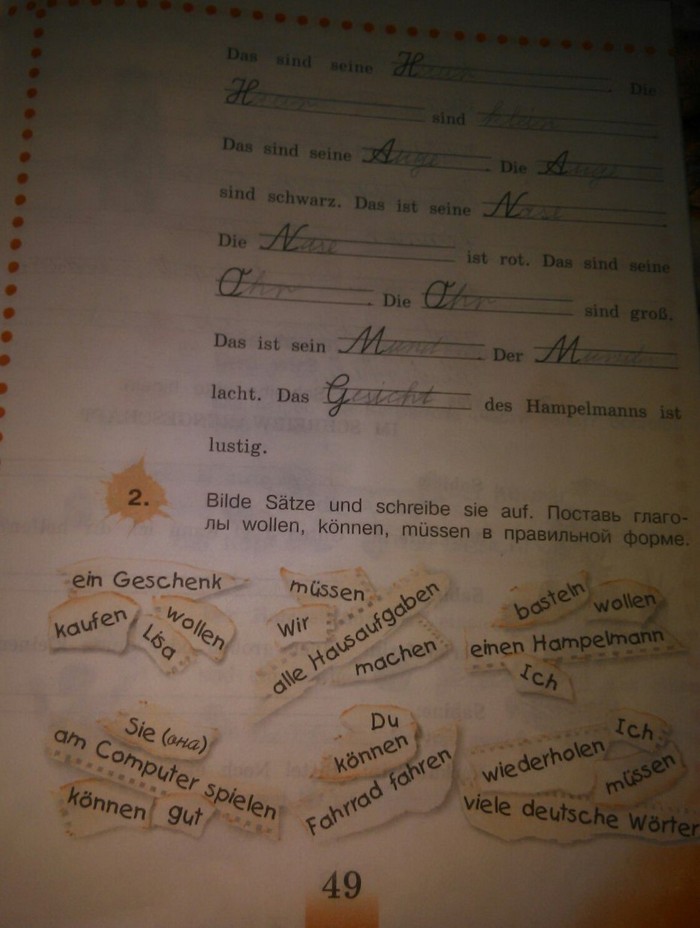 Das sind seine Haar. Die
Haar sind klein
Das sind seine Auge. Die Auge
sind schwarz. Das ist seine Nase
Die Nase ist rot. Das sind seine
Ohr. Die Ohr sind groß.
Das ist sein Mund. Der Mund
lacht. Das Gesicht des Hampelmanns ist
lustig.
2. Bilde Sätze und schreibe sie auf. Поставь глаго-
лы wollen, können, müssen в правильной форме.
ein Geschenk
kaufen
wollen
Lisa
müssen
Wir
alle Hausaufgaben
machen
basteln
wollen
einen Hampelmann
Ich
Sie (она)
am Computer spielen
können
gut
Du
können
Fahrrad fahren
Ich
wiederholen
müssen
viele deutsche Wörter
49